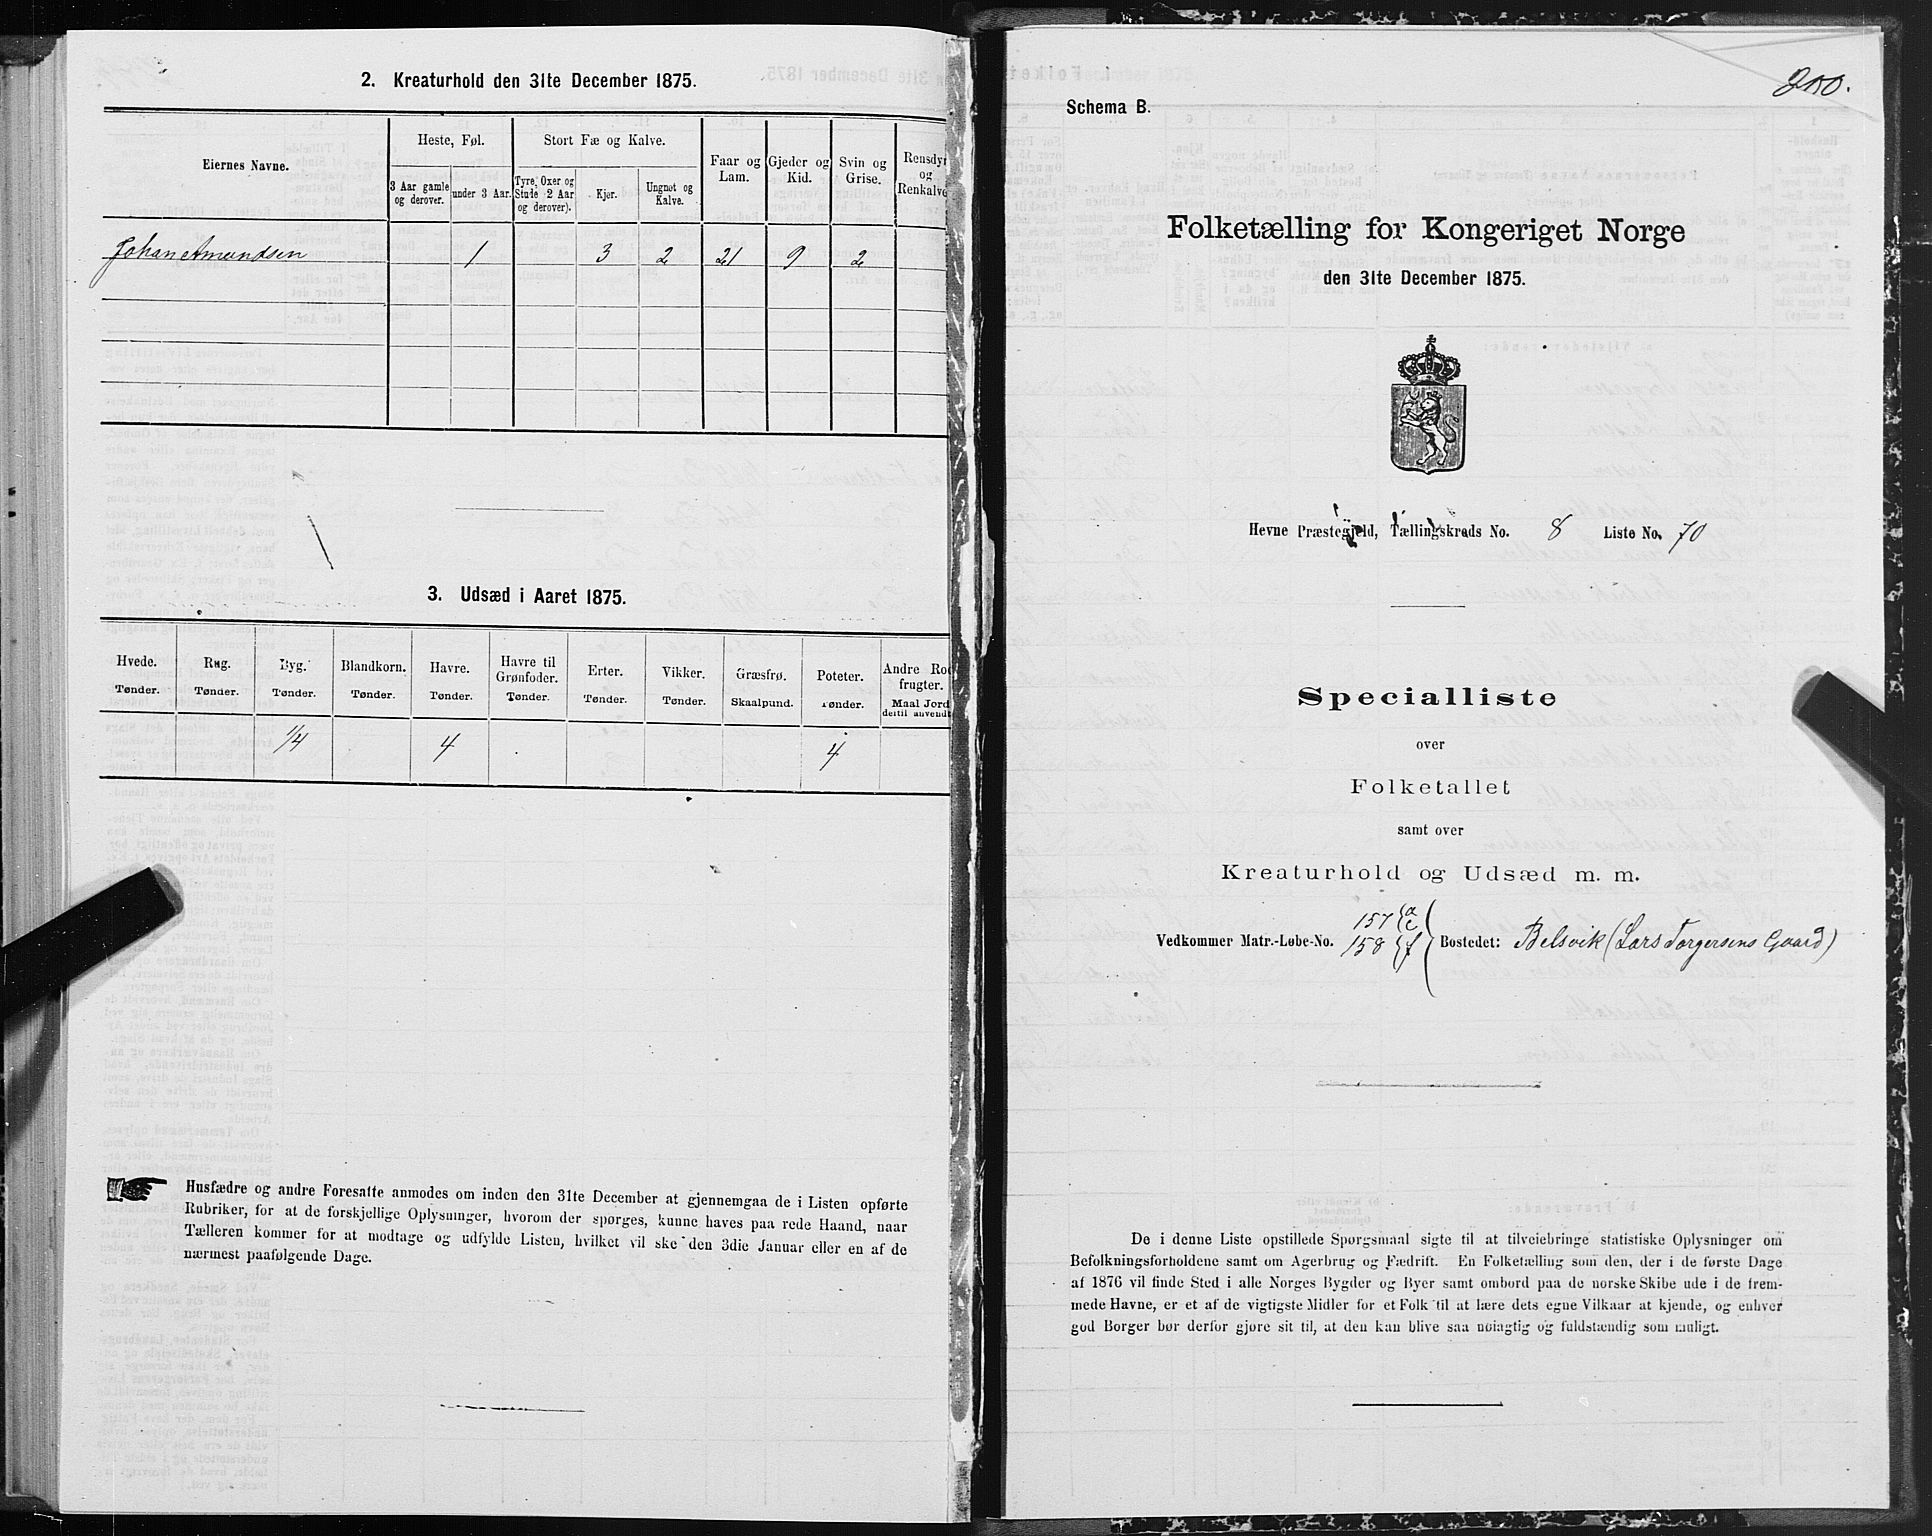 2. Kreaturhold den 31te December 1875.
Eiernes Navne.
Heste, Føl.
Stort Fæ og Kalve.
Faar og Lam.
Gjeder og Kid.
Svin og Grise.
Rensdyr og Renkalve
3 Aar gamle og derover.
under 3 Aar.
Tyre, Oxer og Stude (2 Aar og derover).
Kjør.
Ungnøt og Kalve.
Johan Amundsen 1 3 2 21 9 2
3. Udsæd i Aaret 1875.
Hvede. Rug. Byg. Blandkorn. Havre. Havre til Grønfoder. Erter. Vikker. Græsfrø. Poteter. Andre Rodfrugter.
Tønder. Tønder. Tønder. Tønder. Tønder. Tønder. Tønder. Tønder. Skaalpund. Tønder. Maal Jord dertil anvendt
1/4 4 4
Husfædre og andre Foresatte anmodes om inden den 31te December at gjennemgaa de i Listen opførte
Rubriker, for at de forskjellige Oplysninger, hvorom der spørges, kunne haves paa rede Haand, naar
Tælleren kommer for at modtage og udfylde Listen, hvilket vil ske den 3die Januar eller en af de
nærmest paafølgende Dage.
200.
Schema B.
Folketælling for Kongeriget Norge
den 31te December 1875.
Hevne Præstegjeld, Tællingskreds No. 8 Liste No. 70
Specialliste
over
Folketallet
samt over
Kreaturhold og Udsæd m. m.
157 { a c
Vedkommer Matr.-Løbe-No. 158 { f Bostedet: Belsvik (Lars Torgersens Gaard)
De i denne Liste opstillede Spørgsmaal sigte til at tilveiebringe statistiske Oplysninger om
Befolkningsforholdene samt om Agerbrug og Fædrift. En Folketælling som den, der i de første Dage
af 1876 vil finde Sted i alle Norges Bygder og Byer samt ombord paa de norske Skibe ude i de frem-
mede Havne, er et af de vigtigste Midler for et Folk til at lære dets egne Vilkaar at kjende, og enhver
god Borger bør derfor gjøre sit til, at den kan blive saa nøiagtig og fuldstændig som muligt.